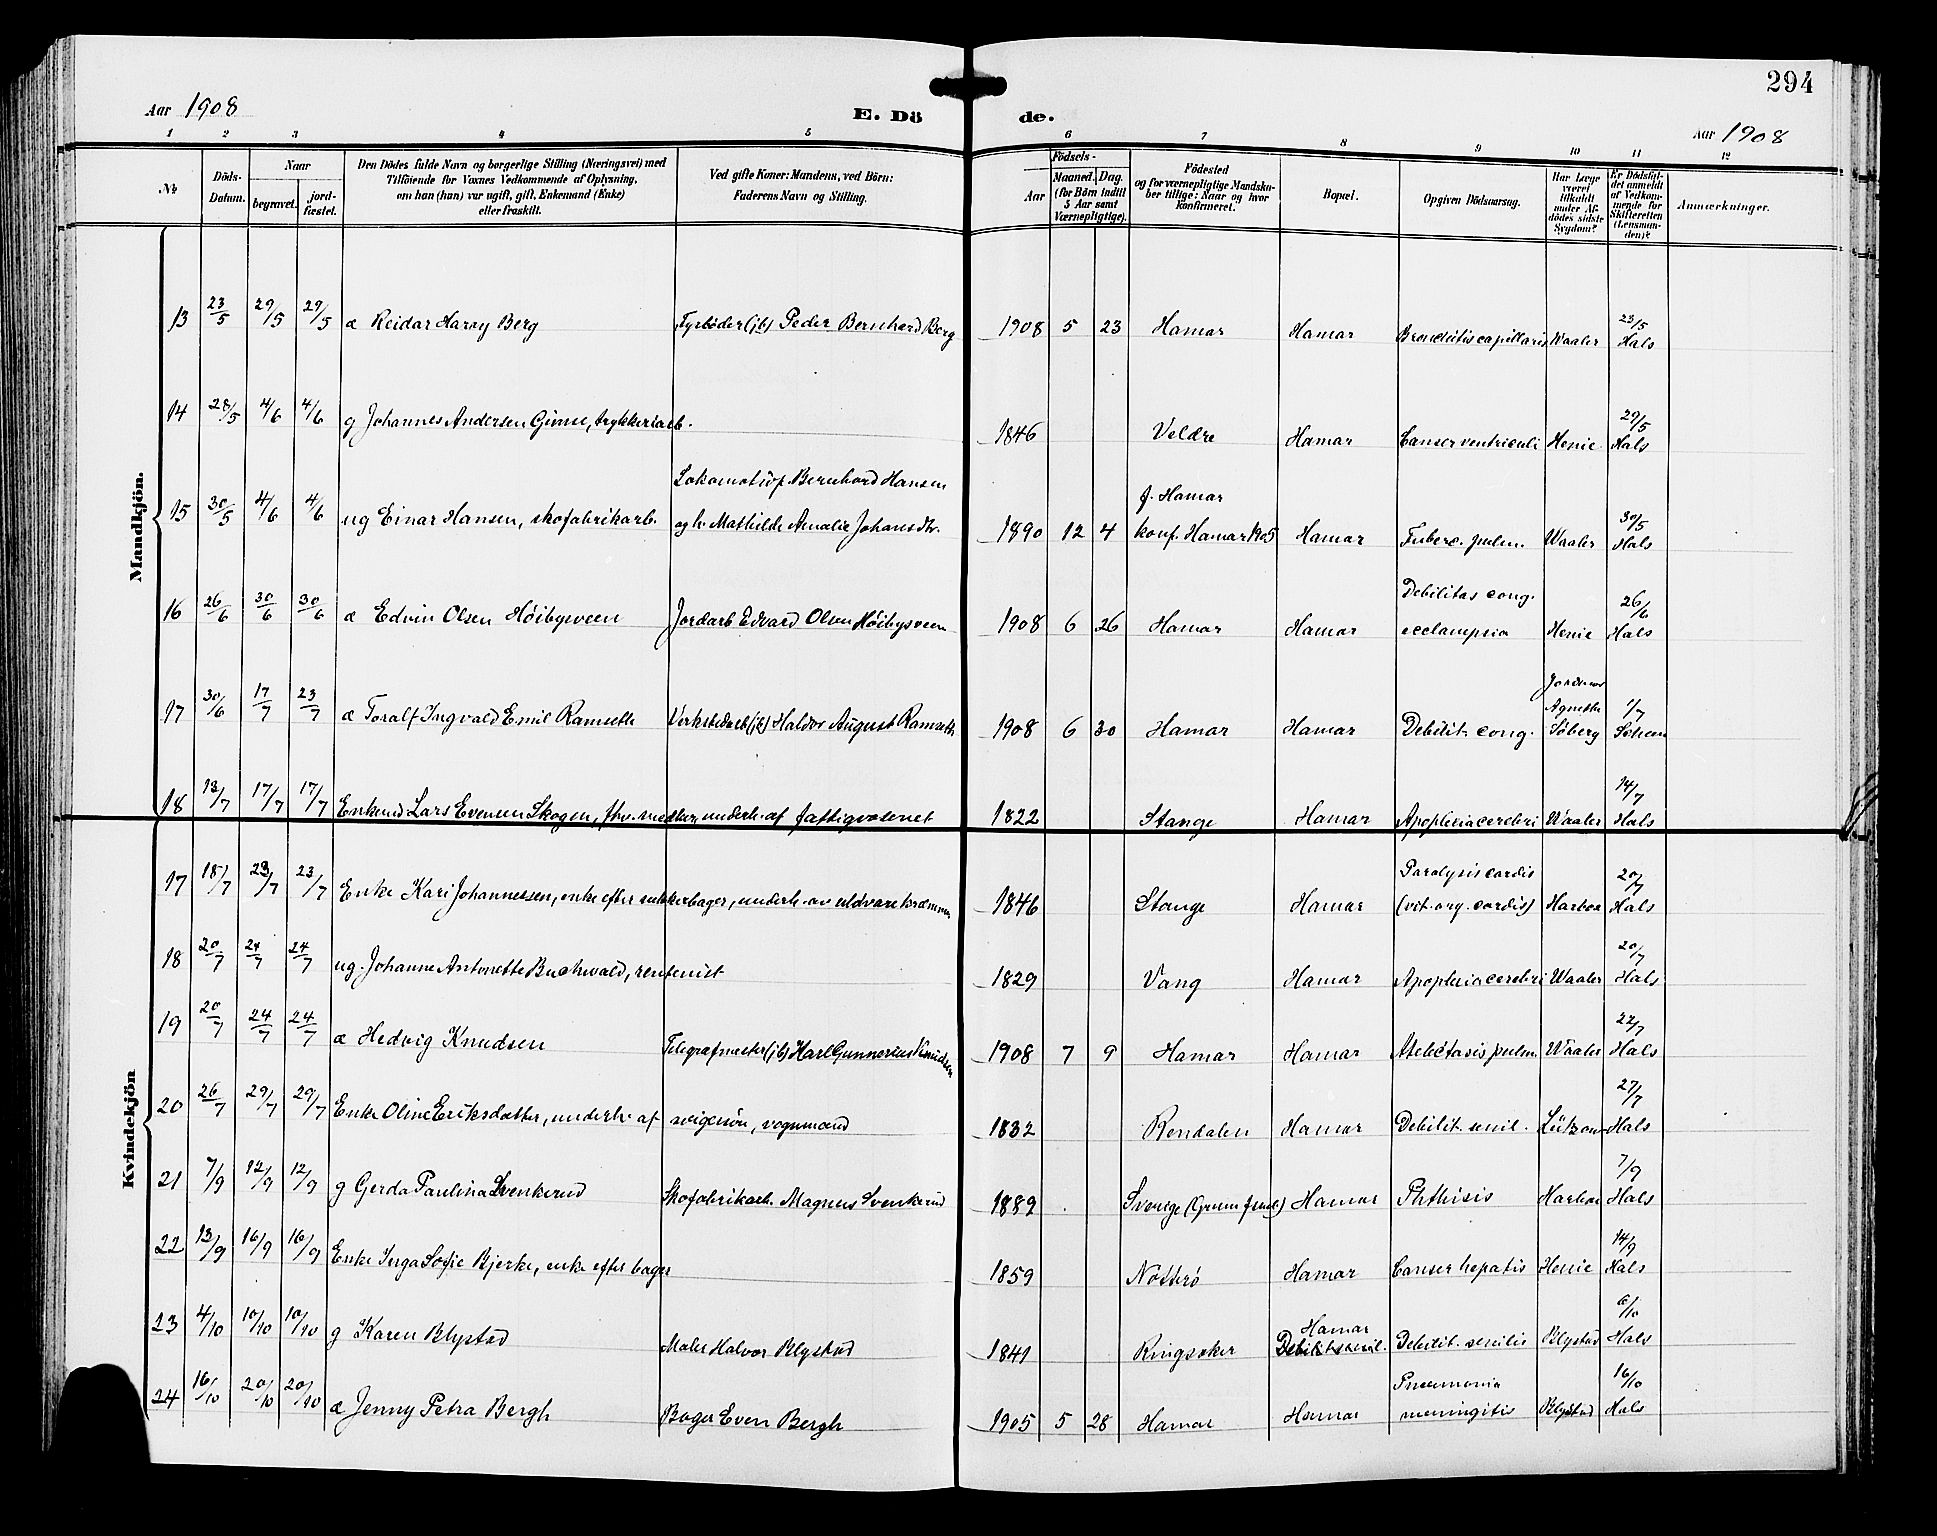 294
Aar 1908
E. Dö de.
Aar 1908
1 2 3 4 5 6 7 8 9 10 11 12
No
Döds-Datum.
Naar
begravet.
jord-fæstet.
Den Dödes fulde Navn og borgerlige Stilling (Næringsvei) med
Tilföiende for Voxnes Vedkommende af Oplysning,
om han (hun) var ugift, gift, Enkemand (Enke)
eller fraskilt.
Ved gifte Koner: Mandens, ved Börn:
Faderens Navn og Stilling.
Födsels-
Aar
Maaned. Dag.
(for Börn indtil
5 Aar samt
Værnepligtige).
Födested
og for værnepligtige Mandska-
ber tillige: Naar og hvor
konfirmeret.
Bopæl.
Opgiven Dödsaarsag.
Har Læge
været
tilkaldt
under Af-
dödes sidste
Sygdom?
Er Dödsfal-
det anmeldt
af Vedkom-
mende for
Skifteretten
(Lensman-
den)?
Anmærkninger.
Mandkjön.
13 23/5 29/5 29/5 æ Reidar Harry Berg Fyrbøder (jb) Peder Bernhard Berg 1908 5 23 Hamar Hamar Bronchitis capillaris Waaler 23/5 Hals
14 28/5 4/6 4/6 g Johannes Andersen Gimse, trykkeriarb. 1846 Veldre Hamar Canser ventriculi Henie 29/5 Hals
Lokomotivf. Bernhard Hansen f. Hamar
15 30/5 4/6 4/6 ug Einar Hansen, skofabrikarb. og h. Mathilde Amalie Johansdtr. 1890 12 4 konf. Hamar 1905 Hamar Tuberc. pulm. Waaler 30/5 Hals
Debilitas cong.
16 26/6 30/6 30/6 æ Edvin Olsen Høibysveen Jordarb Edvard Olsen Høibysveen 1908 6 26 Hamar Hamar ecclampsia Henie 26/6 Hals
Jordmor
Agnethe
17 30/6 17/7 23/7 æ Toralf Ingvald Emil Ramseth Verkstedarb (jb) Haldor August Ramseth 1908 6 30 Hamar Hamar Debilit. cong. Söberg 1/7
18 13/7 17/7 17/7 Enkemd Lars Evensen Skogen, fhv. underh. af fattigvæsenet 1822 Stange Hamar Apoplexia cerebri Waaler 14/7 Hals
Kvindekjön
Paralysis cordis
17 18/7 23/7 23/7 Enke Kari Johannessen, enke efter sukkerbager, underh. av uldvarekræmmer 1846 Stange Hamar (vit. org. cordis) Harboe 20/7 Hals
18 20/7 24/7 24/7 ug. Johanne Antonette Buchwald, rentenist 1829 Vang Hamar Apoplexia cerebri Waaler 20/7 Hals
19 20/7 24/7 24/7 æ Hedvig Knudsen Telegrafmester (jb) Karl Gunnerius Knudsen 1908 7 9 Hamar Hamar Atelectasis pulm. Waaler 22/7 Hals
20 26/7 29/7 29/7 Enke Oline Eriksdatter, underh. af svigersön, vognmand 1832 Rendalen Hamar Debilit. senil. Lützow 27/7 Hals
21 7/9 12/9 12/9 g Gerda Paulina Svenkerud Skofabrikarb. Magnus Svenkerud 1889 Sverige Hamar Phthisis Harboe 7/9 Hals
22 13/9 16/9 16/9 Enke Inga Sofie Bjerke, enke efter bager 1859 Nötterö Hamar Canser hepatis Henie 14/9 Hals
Hamar
23 4/10 10/10 10/10 g Karen Blystad Maler Halvor Blystad 1841 Ringsaker Debilit. senil. Debilit. senilis Blystad 6/10 Hals
Pneumonia
24 16/10 20/10 20/10 æ Jenny Petra Bergh Bager Even Bergh 1905 5 28 Hamar Hamar meningitis Blystad 16/10 Hals